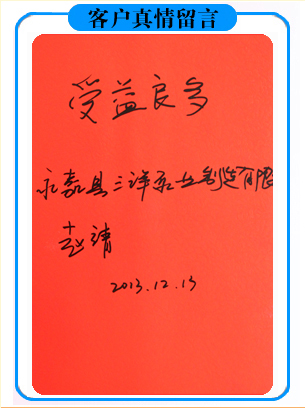 客户真情留言
受益良多
永嘉县三洋泵业制造有限
赵靖
2013.12.13